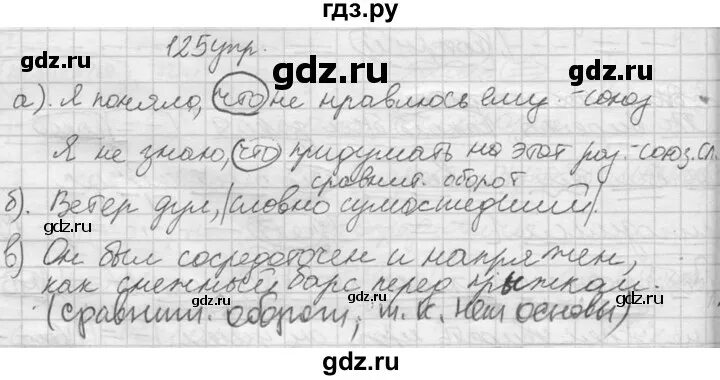 гдз.ру
125упр.
gdz.ru gdz.ru gdz.ru
а). Я поняла, что не нравлюсь ему. - союз
Я не знаю, что придумать на этот раз. - союз. сл.
сравнит. оборот
б). Ветер дул, |словно сумасшедший|.
в) Он был сосредоточен и напряжен,
как снежный барс перед прыжком.
(сравнит. оборот, т. к. нет основы)
gdz.ru gdz.ru gdz.ru